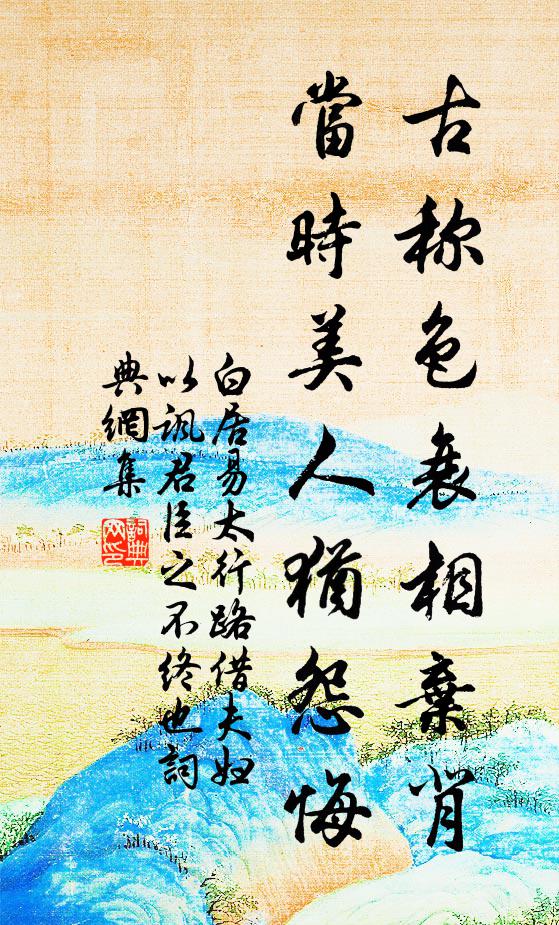 古称色衰相棄背
當時美人猶怨悔
白居易太行路借夫妇
以諷君臣之不终也詞
典網集
詞典
网印